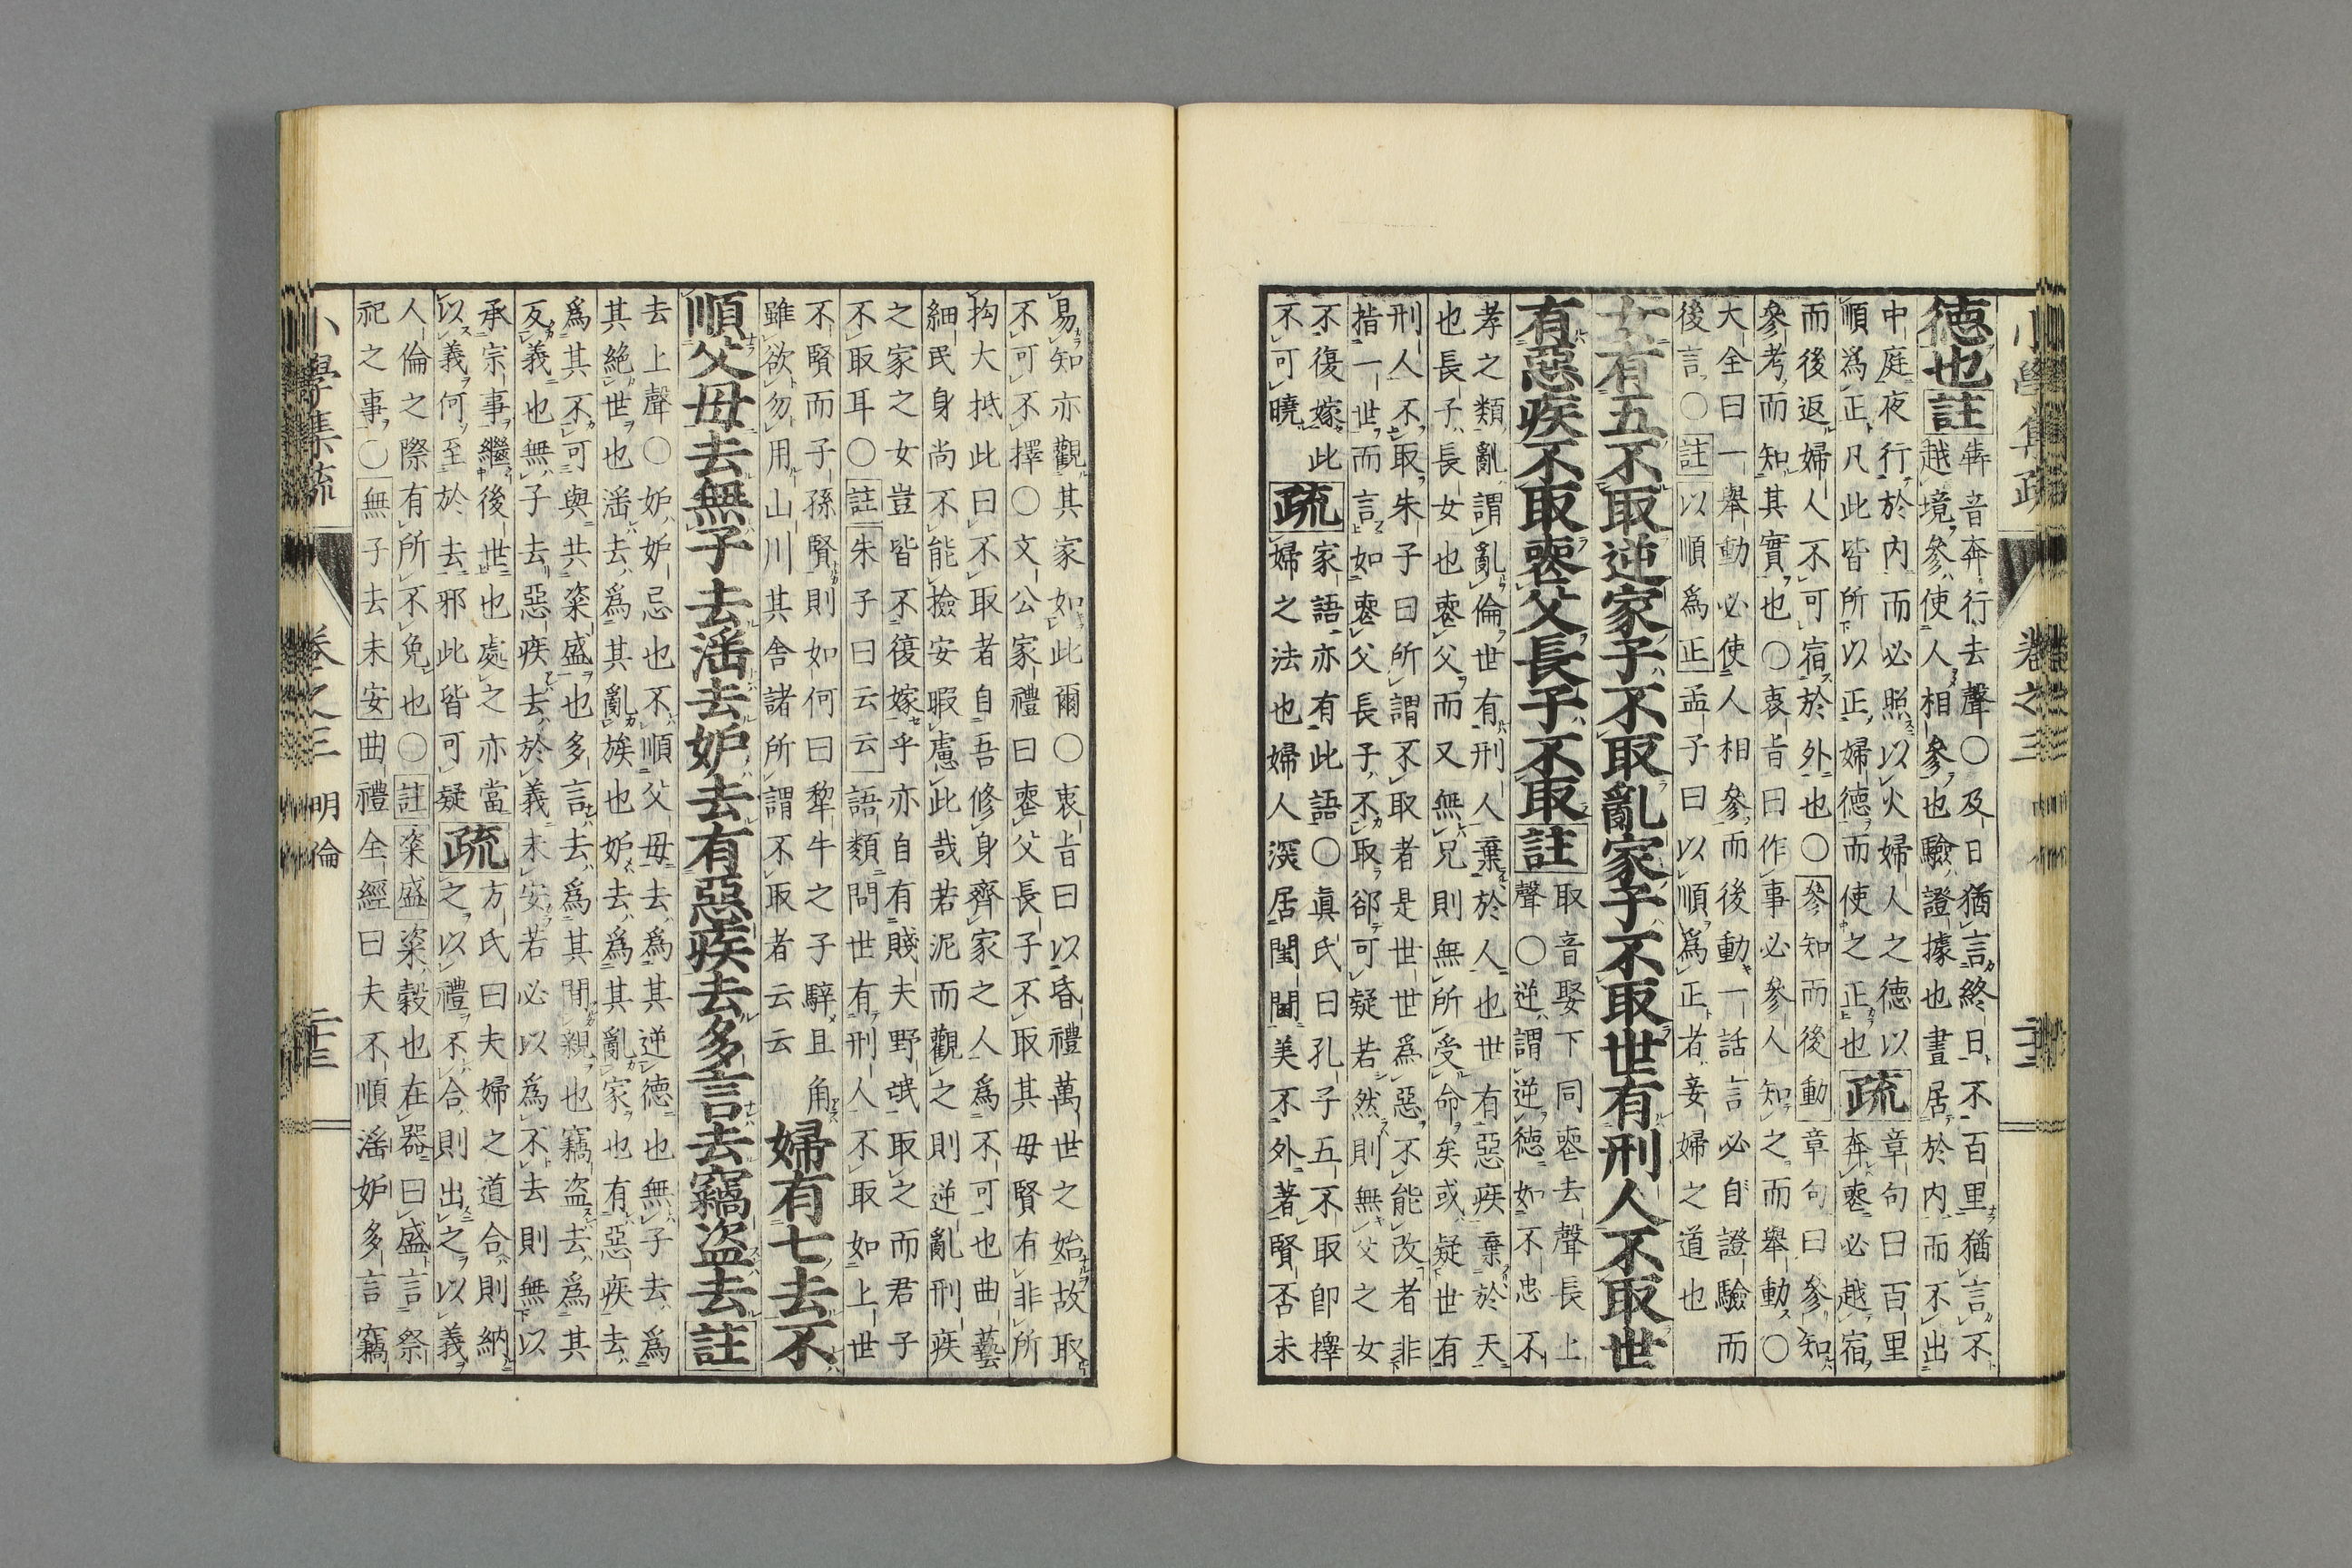 德也註犇音奔行去聲○及日猶言終日不百里猶言不
越境參使人相參也驗證據也晝居於內而不出
中庭夜行於內而必照以火婦人之德以疏章句曰百里
順爲正凡此皆所以正婦德而使之正也奔喪必越宿
而後返婦人不可宿於外也○參知而後動章句曰參知
參考而知其實也○衷旨曰作事必參人知之而舉動○
大全曰一舉動必使人相參而後動一話言必自證驗而
後言○註以順爲正孟子曰以順爲正者妾婦之道也
女有五不取逆家子不取亂家子不取世有刑人不取世
有惡疾不取喪父長子不取註取音娶下同喪去聲長上
聲○逆謂逆德如不忠不
孝之類亂謂亂倫世有刑人棄於人也世有惡疾棄於天
也長子長女也喪父而又無兄則無所受命矣或疑世有
刑人不取朱子曰所謂不取者是世世爲惡不能改者非
措一世而言如喪父長子不取卻可疑若然則無父之女
不復嫁此家語亦有此語○眞氏曰孔子五不取卽擇
不可曉疏婦之法也婦人深居閨閫美不外著賢否未
易知亦觀其家如此爾○衷旨曰以昏禮萬世之始故取
不可不擇○文公家禮曰喪父長子不取其母賢有非所
拘大抵此曰不取者自吾修身齊家之人爲不可也曲藝
細民身尚不能撿安暇慮此哉若泥而觀之則逆亂刑疾
之家之女豈皆不復嫁乎亦自有賤夫野氓取之而君子
不取耳○註朱子曰云云語類問世有刑人不取如上世
不賢而子孫賢則如何曰犂牛之子騂且角
雖欲勿用山川其舍諸所謂不取者云云婦有七去不
順父母去無子去淫去妒去有惡疾去多言去竊盜去註
去上聲○妒妒忌也不順父母去爲其逆德也無子去爲
其絕世也淫去爲其亂族也妒去爲其亂家也有惡疾去
爲其不可與共粢盛也多言去爲其間親也竊盜去爲其
反義也無子去惡疾去於義未安若必以爲不去則無以
承宗事繼後世也處之亦當疏方氏曰夫婦之道合則納
以義何至於去邪此皆可疑之以禮不合則出之以義
人倫之際有所不免也○註粢盛粢穀也在器曰盛言祭
祀之事○無子去未安曲禮全經曰夫不順淫妒多言竊
卷之三 明倫 二十三